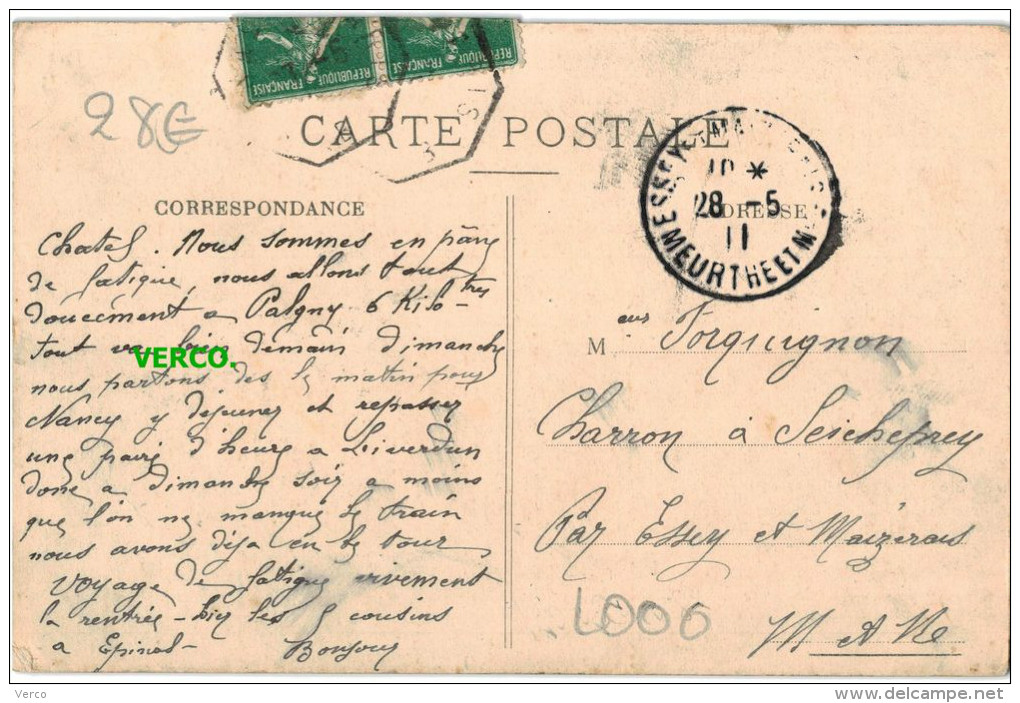 REPUBLIQUE FRANÇAISE
REPUBLIQUE FRANÇAISE
28€
CARTE POSTALE
CORRESPONDANCE
ADRESSE
28 -5
11
MEURTHE ET M
Chatel. Nous sommes en
de fatigue, nous allons tout
doucement a Palgny 6 Kilotres
tout va bien demain dimanche
nous partons des le matin pour
Nancy y déjeuner et repasser
une paire d'heure a Liverdun
donc a dimanche soir a moins
que l'on ne manque le train
nous avons déja en le tour
voyage de fatigue vivement
la rentrée - les cousins
a Epinal - Bonjour
VERCO.
M eur Forquignon
Charron à Seicheprey
Par Essey et Maizerais
M et Mlle
L000
Verco
www.delcampe.net